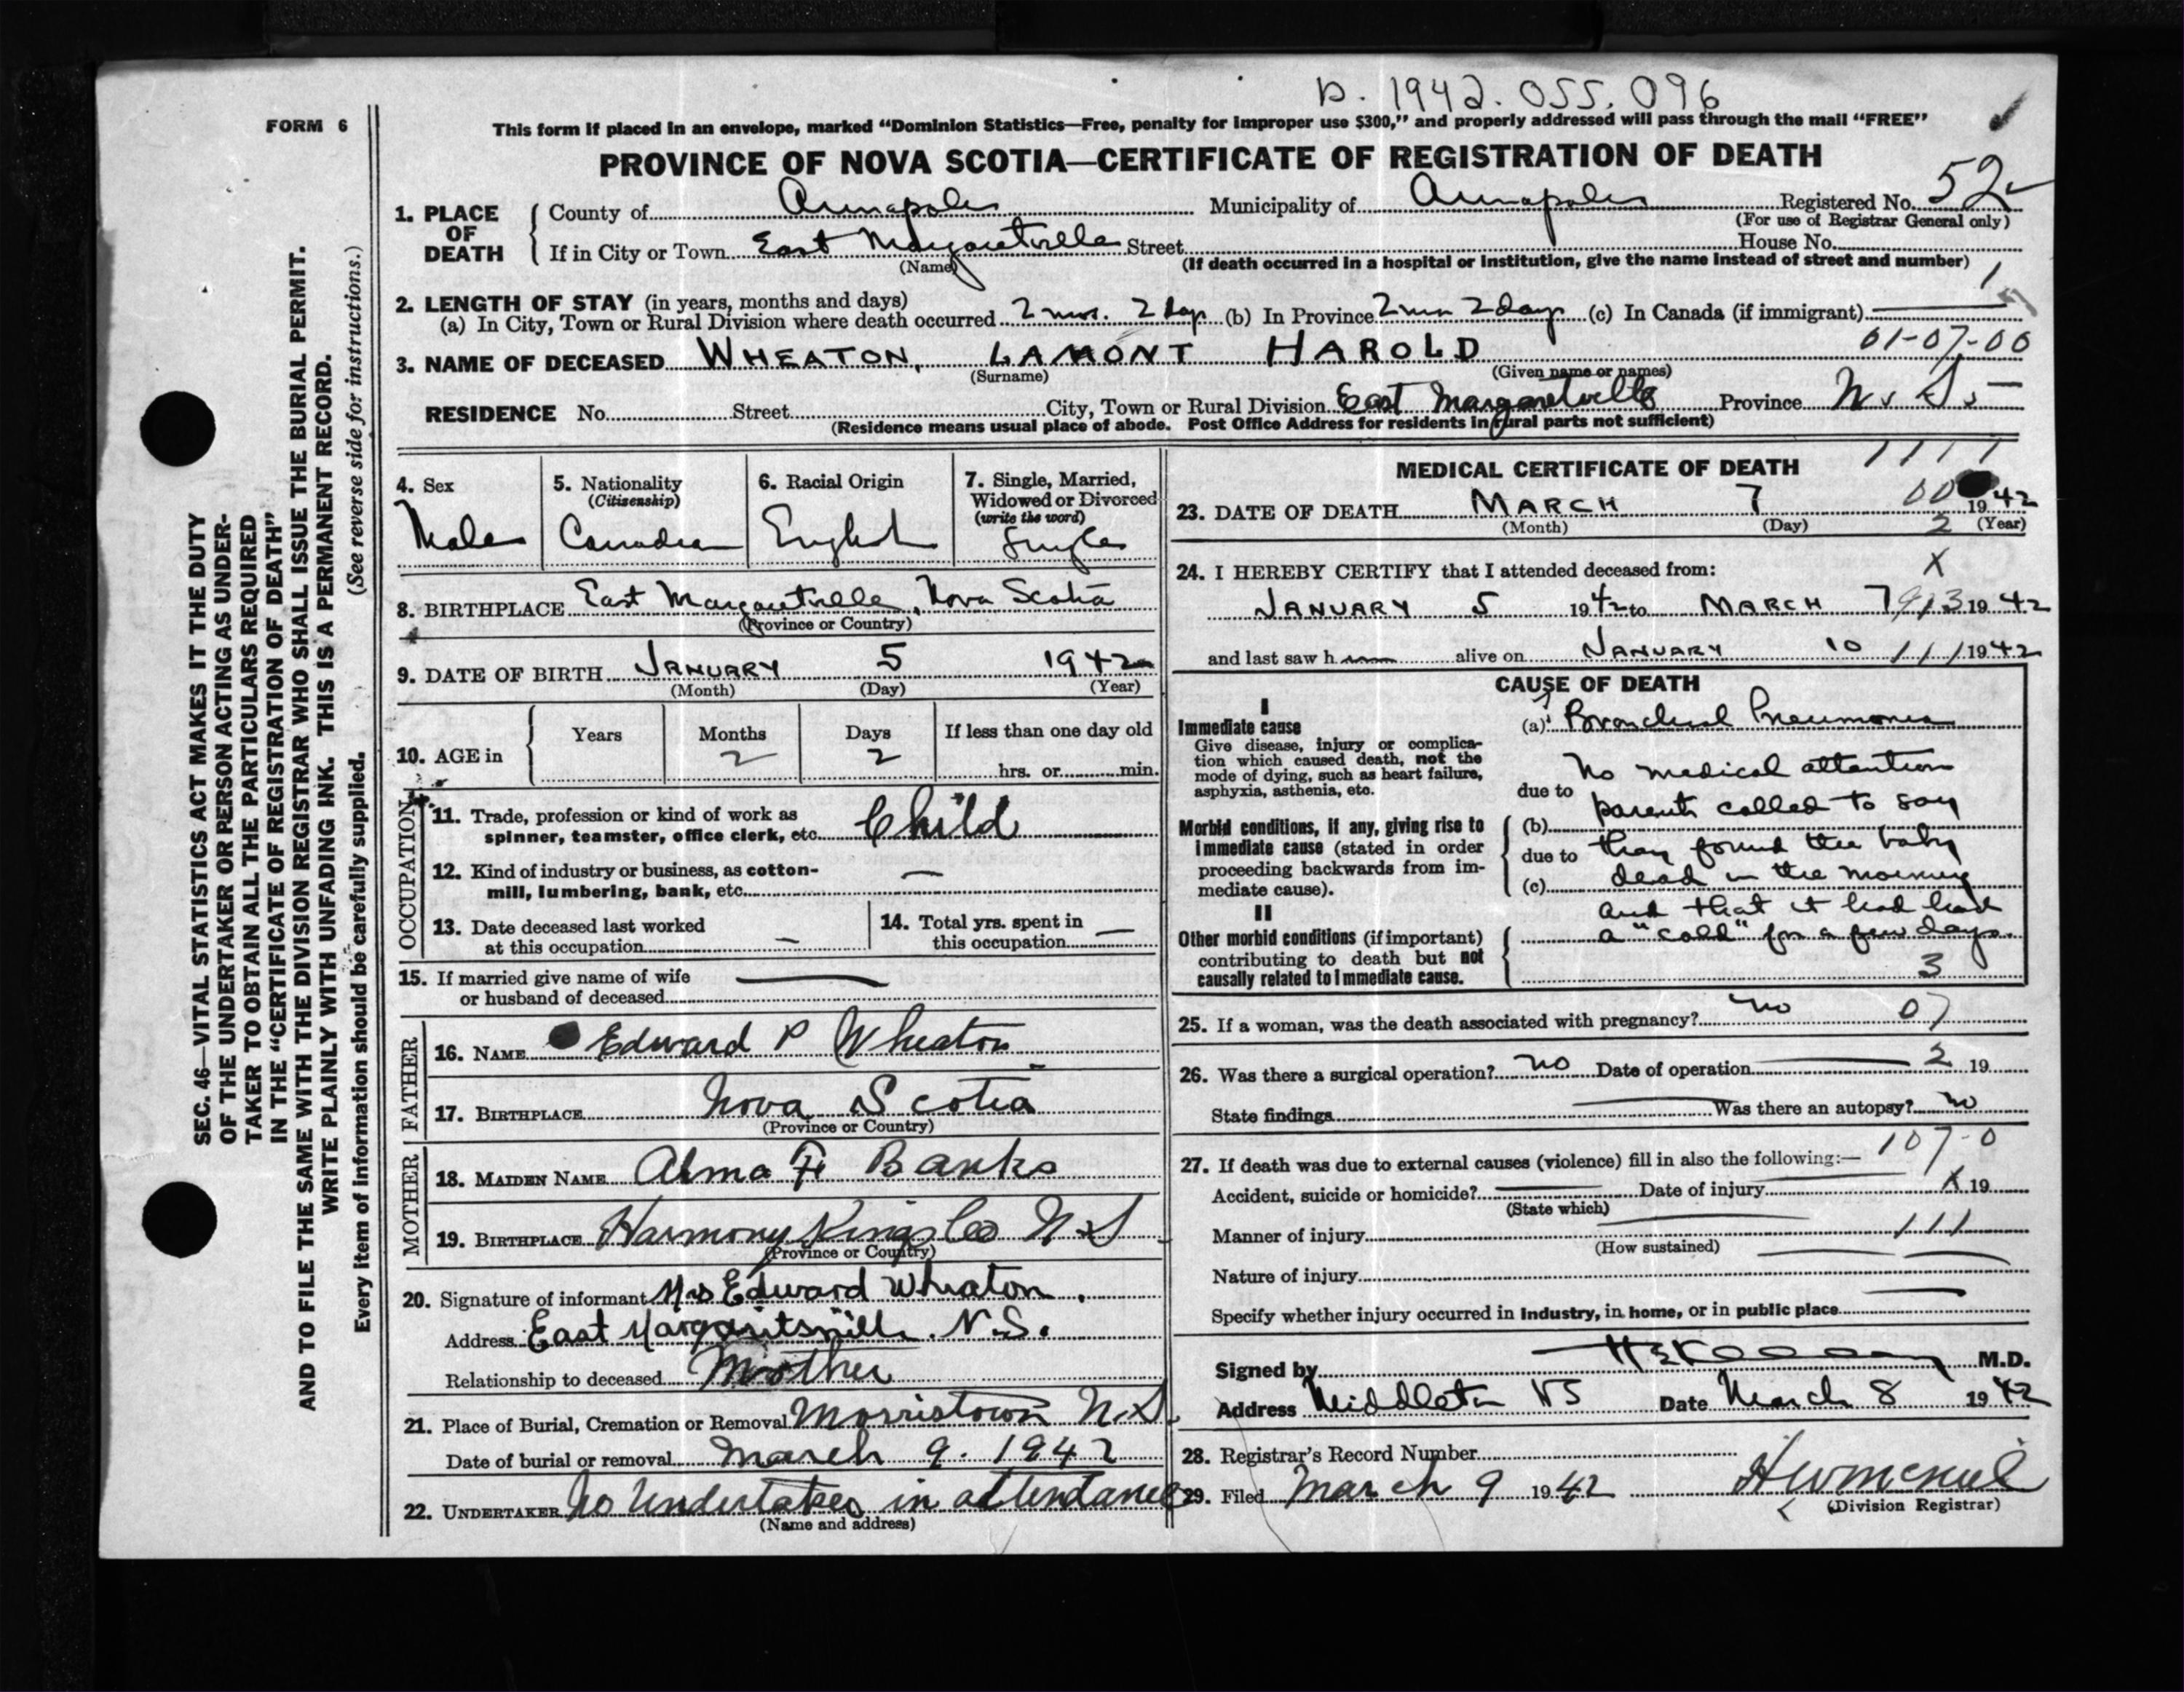 D. 1942. 055. 096
FORM 6
This form if placed in an envelope, marked “Dominion Statistics—Free, penalty for improper use $300,” and properly addressed will pass through the mail “FREE”
PROVINCE OF NOVA SCOTIA—CERTIFICATE OF REGISTRATION OF DEATH
1. PLACE OF DEATH
County of Annapolis Municipality of Annapolis Registered No. 52
(For use of Registrar General only)
If in City or Town East Margaretville Street House No.
(Name) (If death occurred in a hospital or institution, give the name instead of street and number)
2. LENGTH OF STAY (in years, months and days)
(a) In City, Town or Rural Division where death occurred 2 mos. 2 days (b) In Province 2 mos 2 days (c) In Canada (if immigrant) —
01-07-00
3. NAME OF DECEASED WHEATON, LAMONT HAROLD
(Surname) (Given name or names)
RESIDENCE No. Street City, Town or Rural Division East Margaretville Province N. S. —
(Residence means usual place of abode. Post Office Address for residents in rural parts not sufficient)
4. Sex
Male
5. Nationality
(Citizenship)
Canadian
6. Racial Origin
English
7. Single, Married,
Widowed or Divorced
(write the word)
Single
8. BIRTHPLACE East Margaretville, Nova Scotia
(Province or Country)
9. DATE OF BIRTH JANUARY 5 1942
(Month) (Day) (Year)
10. AGE in
Years Months Days If less than one day old
2 2 hrs. or min.
OCCUPATION
11. Trade, profession or kind of work as
spinner, teamster, office clerk, etc. Child
12. Kind of industry or business, as cotton-
mill, lumbering, bank, etc. —
13. Date deceased last worked
at this occupation —
14. Total yrs. spent in
this occupation —
15. If married give name of wife
or husband of deceased —
FATHER
16. NAME Edward P Wheaton
17. BIRTHPLACE Nova Scotia
(Province or Country)
MOTHER
18. MAIDEN NAME Alma F Banks
19. BIRTHPLACE Harmony Kings Co N.S
(Province or Country)
20. Signature of informant Mrs Edward Wheaton.
Address East Margaritsville. N.S.
Relationship to deceased Mother
21. Place of Burial, Cremation or Removal Morristown N.S.
Date of burial or removal March 9. 1942
22. UNDERTAKER No Undertaker in attendance
(Name and address)
MEDICAL CERTIFICATE OF DEATH
23. DATE OF DEATH MARCH 7 1942
(Month) (Day) (Year)
24. I HEREBY CERTIFY that I attended deceased from:
JANUARY 5 1942 to MARCH 7 1942
and last saw h alive on JANUARY 10 1942
CAUSE OF DEATH
I
Immediate cause
Give disease, injury or complica-
tion which caused death, not the
mode of dying, such as heart failure,
asphyxia, asthenia, etc.
Morbid conditions, if any, giving rise to
immediate cause (stated in order
proceeding backwards from im-
mediate cause).
II
Other morbid conditions (if important)
contributing to death but not
causally related to immediate cause.
(a) Bronchial Pneumonia
No medical attention
due to parents called to say
(b)
due to they found the baby
(c) dead in the morning
and that it had had
a “cold” for a few days.
3
25. If a woman, was the death associated with pregnancy? no 07
26. Was there a surgical operation? no Date of operation — 2 19
State findings — Was there an autopsy? no
107-0
27. If death was due to external causes (violence) fill in also the following:—
Accident, suicide or homicide? — Date of injury X 19
(State which)
Manner of injury 111
(How sustained)
Nature of injury
Specify whether injury occurred in industry, in home, or in public place
Signed by M.D.
Address Middleton NS Date March 8 1942
28. Registrar’s Record Number
29. Filed March 9 1942
(Division Registrar)
SEC. 46—VITAL STATISTICS ACT MAKES IT THE DUTY
OF THE UNDERTAKER OR PERSON ACTING AS UNDER-
TAKER TO OBTAIN ALL THE PARTICULARS REQUIRED
IN THE “CERTIFICATE OF REGISTRATION OF DEATH”
AND TO FILE THE SAME WITH THE DIVISION REGISTRAR WHO SHALL ISSUE THE BURIAL PERMIT.
WRITE PLAINLY WITH UNFADING INK. THIS IS A PERMANENT RECORD.
Every item of information should be carefully supplied. (See reverse side for instructions.)